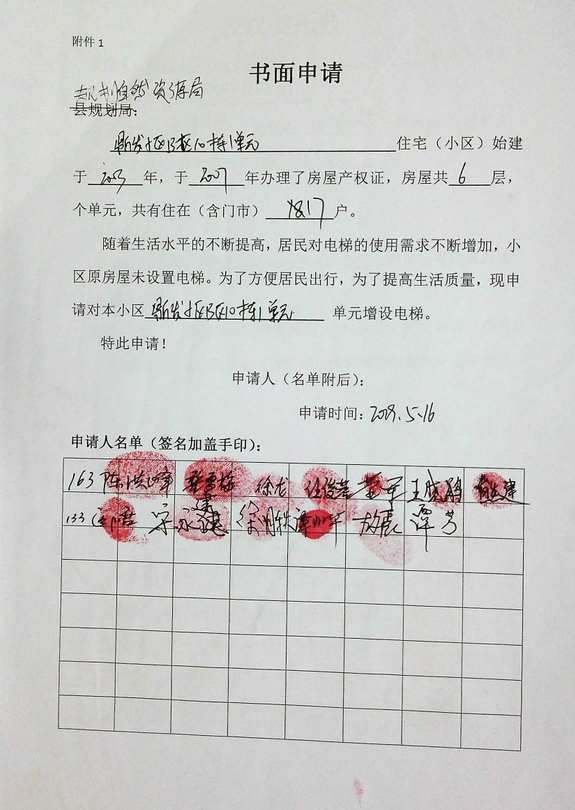 附件1
书面申请
规划自然资源局
县规划局：
新发小区B区10栋1单元住宅（小区）始建
于2003年，于2007年办理了房屋产权证，房屋共6层，
个单元，共有住在（含门市）1817户。
随着生活水平的不断提高，居民对电梯的使用需求不断增加，小
区原房屋未设置电梯。为了方便居民出行，为了提高生活质量，现申
请对本小区新发小区B区10栋1单元单元增设电梯。
特此申请！
申请人（名单附后）：
申请时间：2019.5.16
申请人名单（签名加盖手印）：
163 徐龙 董军
133 宋永建 谭芳